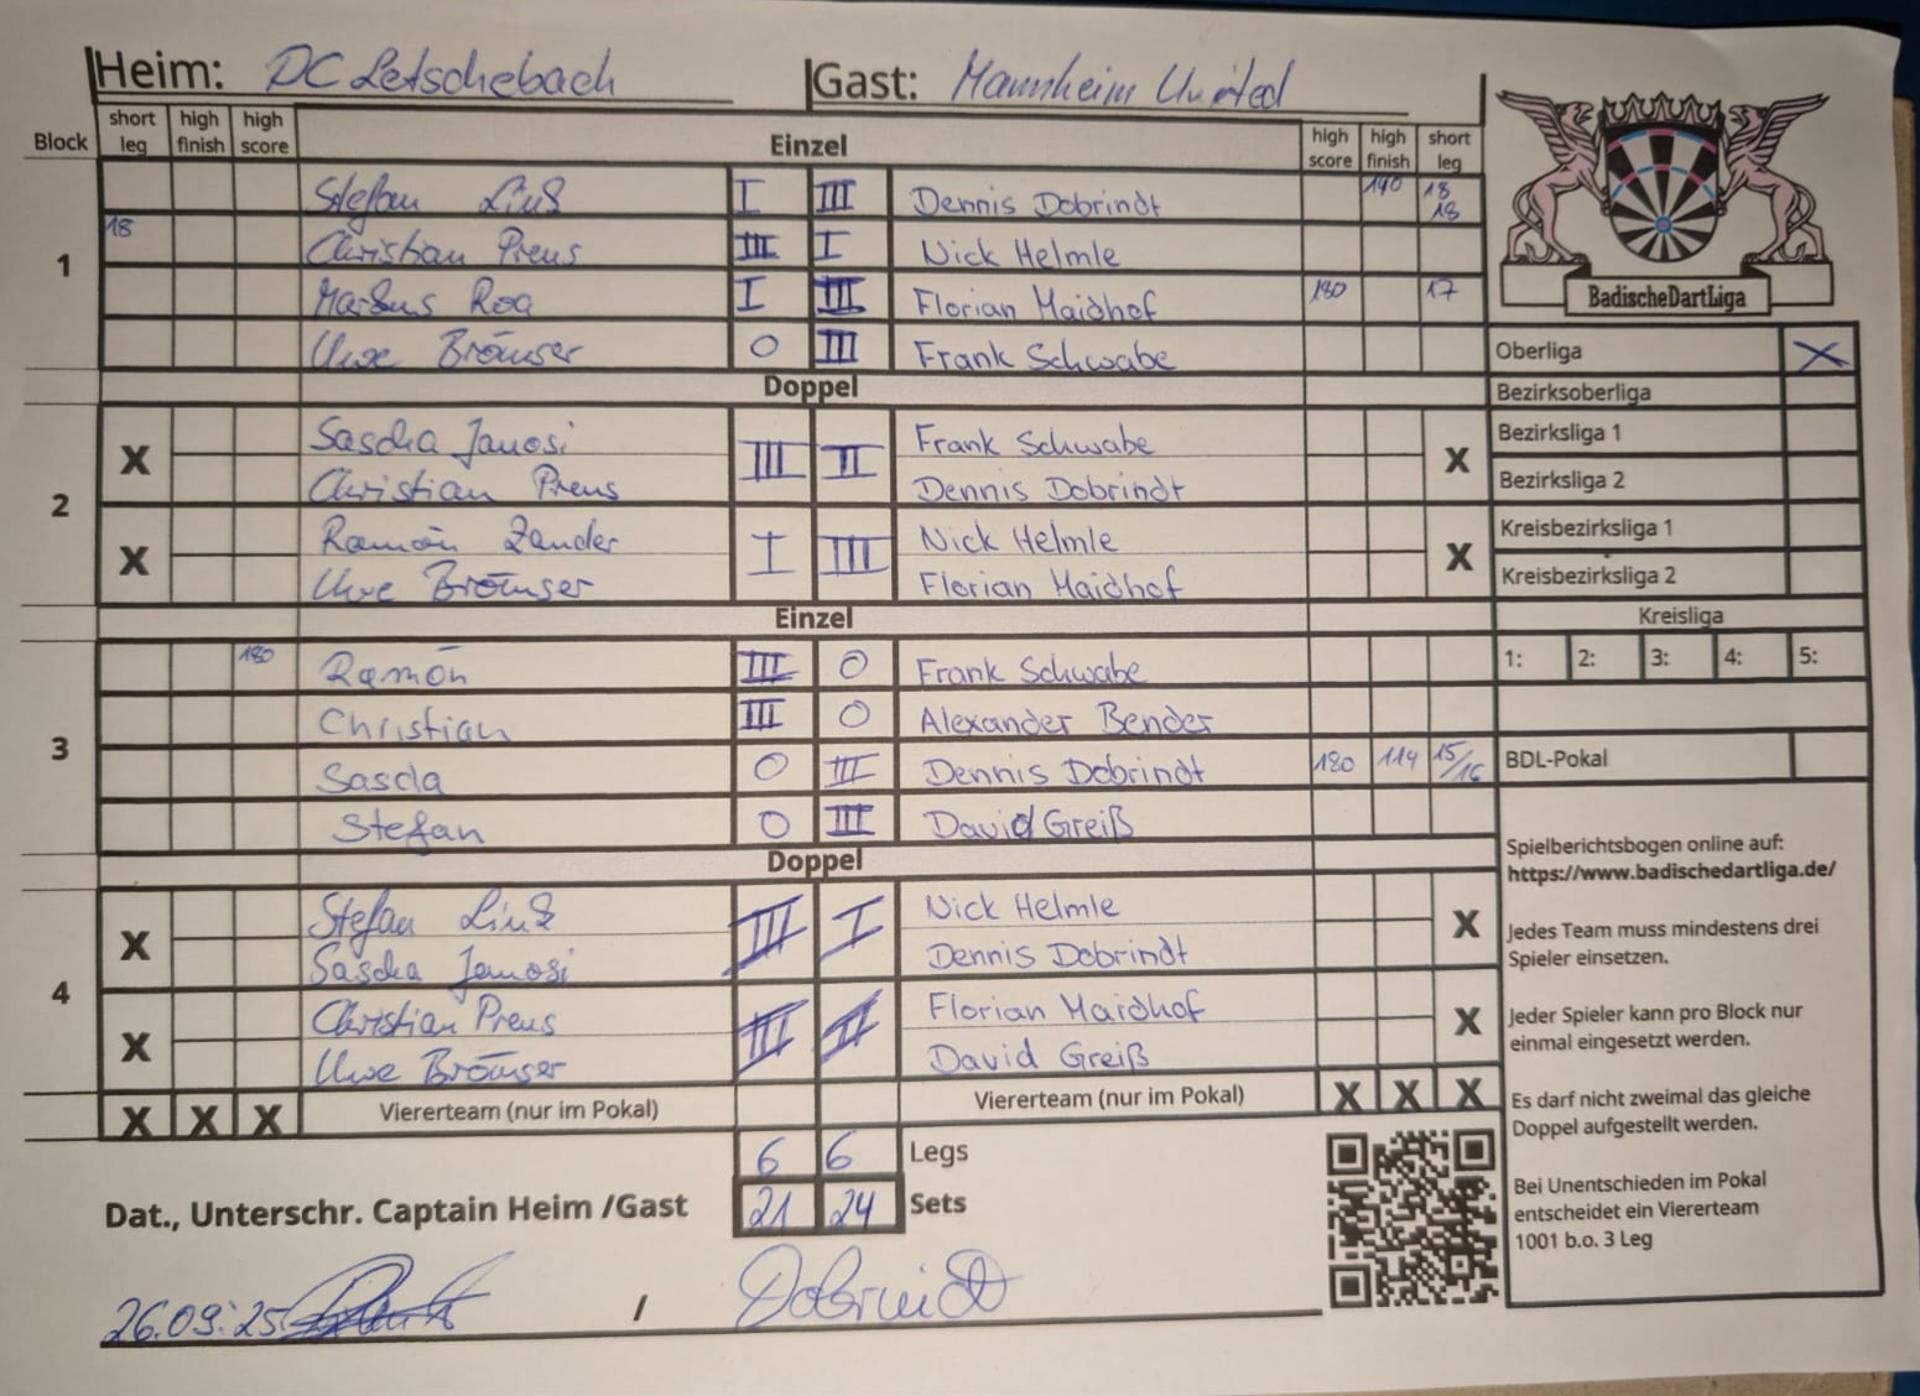 Heim: DC Letschebach Gast: Mannheim United
Block short leg high finish high score Einzel high score high finish short leg
1
Stefan Link I III Dennis Dobrindt 140 18 18
18 Christian Preus III I Nick Helmle
Markus Roa I III Florian Maidhof 180 17
Uwe Bromser O III Frank Schwabe
Doppel
2
X Sascha Janosi III II Frank Schwabe X
Christian Preus Dennis Dobrindt
X Ramon Zander I III Nick Helmle X
Uwe Bromser Florian Maidhof
Einzel
3
180 Ramon III O Frank Schwabe
Christian III O Alexander Bender
Sascla O III Dennis Dobrindt 180 114 15/16
Stefan O III David Greiß
Doppel
4
X Stefan Link III I Nick Helmle X
Sascha Janosi Dennis Dobrindt
X Christian Preus III II Florian Maidhof X
Uwe Bromser David Greiß
X X X Viererteam (nur im Pokal) Viererteam (nur im Pokal) X X X
6 6 Legs
21 24 Sets
Dat., Unterschr. Captain Heim /Gast
26.09.25 / Dobrindt
BadischeDartLiga
Oberliga X
Bezirksoberliga
Bezirksliga 1
Bezirksliga 2
Kreisbezirksliga 1
Kreisbezirksliga 2
Kreisliga
1: 2: 3: 4: 5:
BDL-Pokal
Spielberichtsbogen online auf:
https://www.badischedartliga.de/
Jedes Team muss mindestens drei
Spieler einsetzen.
Jeder Spieler kann pro Block nur
einmal eingesetzt werden.
Es darf nicht zweimal das gleiche
Doppel aufgestellt werden.
Bei Unentschieden im Pokal
entscheidet ein Viererteam
1001 b.o. 3 Leg